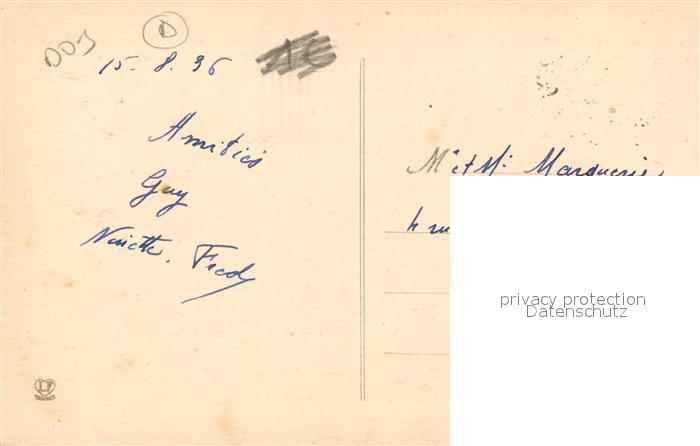 DOJ
D
15-8.36
Amitiés
Guy
Ninette. Fredy
Mr et Mme
4 ru
privacy protection
Datenschutz